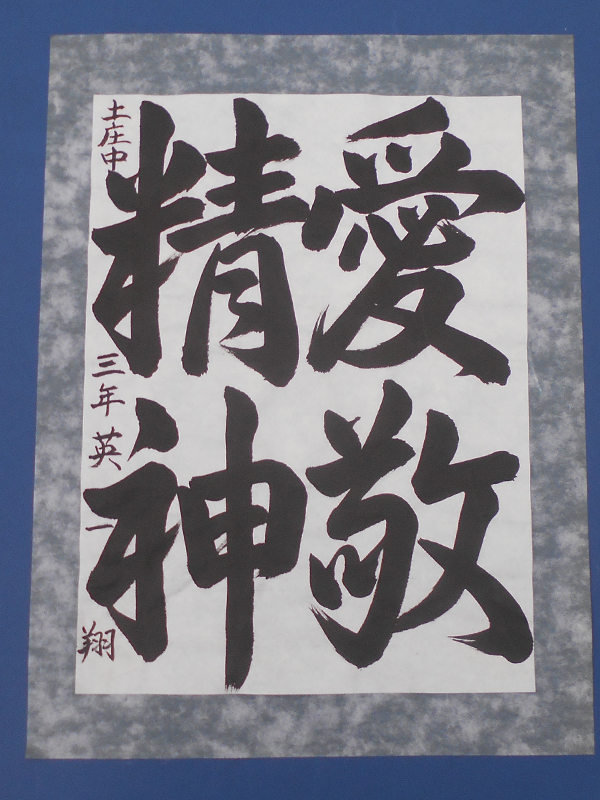 愛敬
精神
土庄中 三年 英一翔